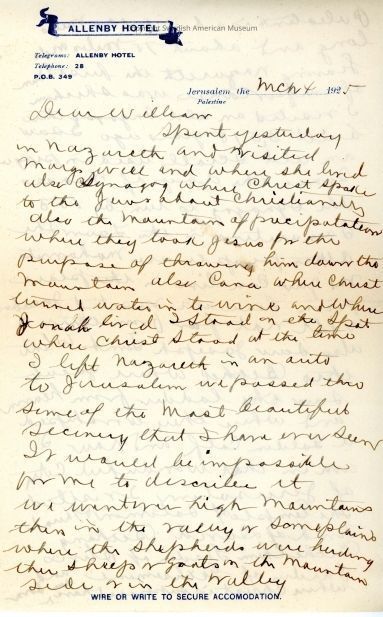 ALLENBY HOTEL
Swedish American Museum
Telegrams: ALLENBY HOTEL
Telephone: 28
P.O.B. 349
Jerusalem the Mch 4 1925
Palestine
Dear William
Spent yesterday
in Nazareth and visited
Marys well and where she lived
also Synagog where Christ spoke
to the Jews about Christianity
also the Mountain of precipatation
where they took Jesus for the
purpose of throwing him down the
Mountain also Cana where Christ
turned water in to wine and where
Jonah lived I stood on the spot
where Christ stood at the time
I left Nazareth in an auto
to Jerusalem we passed thro
some of the most beautiful
secinery that I have ever seen
It would be impossible
for me to describe it
we went over high mountains
then in the valley or some plains
where the shepherds were herding
their sheep or goats on the Mountain
side or in the valley
WIRE OR WRITE TO SECURE ACCOMODATION.